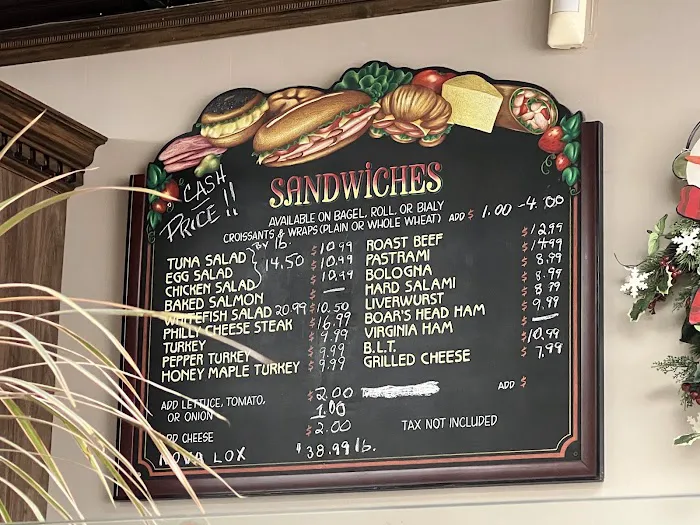 CASH
PRICE!!
SANDWiCHES
AVAILABLE ON BAGEL, ROLL, OR BIALY
CROISSANTS & WRAPS (PLAIN OR WHOLE WHEAT) ADD $ 1.00 - 4.00
by lb.
14.50
TUNA SALAD $10.99
EGG SALAD $10.99
CHICKEN SALAD $10.99
BAKED SALMON —
WHITEFISH SALAD 20.99 $10.50
PHILLY CHEESE STEAK $16.99
TURKEY $9.99
PEPPER TURKEY $9.99
HONEY MAPLE TURKEY $9.99
ROAST BEEF $12.99
PASTRAMI $14.99
BOLOGNA $8.99
HARD SALAMI $8.99
LIVERWURST $8.99
BOAR'S HEAD HAM $9.99
VIRGINIA HAM $ —
B.L.T. $10.99
GRILLED CHEESE $7.99
ADD LETTUCE, TOMATO, $2.00
OR ONION 1.00
CHEESE $2.00
NOVA LOX $38.99 lb.
ADD $
TAX NOT INCLUDED